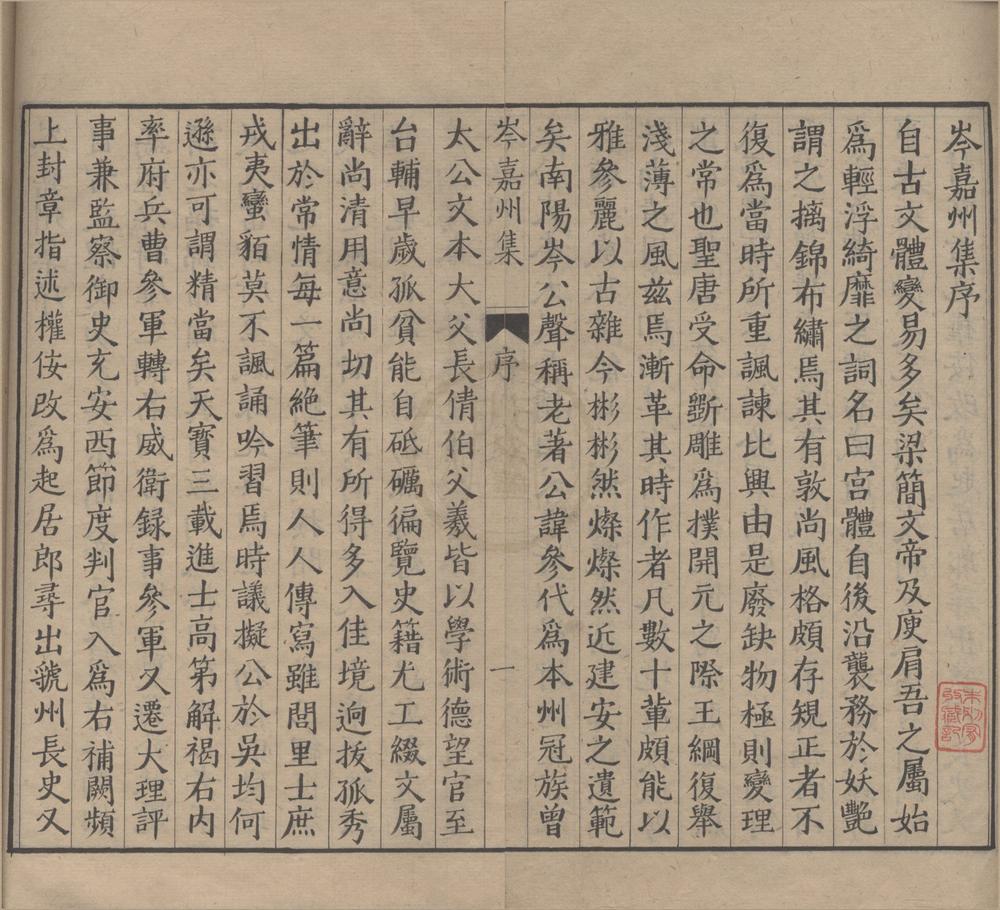 岑嘉州集序
自古文體變易多矣梁簡文帝及庾肩吾之屬始
為輕浮綺靡之詞名曰宮體自後沿襲務於妖艷
謂之摛錦布繡焉其有敦尚風格頗存規正者不
復為當時所重諷諫比興由是廢缺物極則變理
之常也聖唐受命斲雕為撲開元之際王綱復舉
淺薄之風茲焉漸革其時作者凡數十軰頗能以
雅參麗以古雜今彬彬然燦燦然近建安之遺範
矣南陽岑公聲稱老著公諱參代為本州冠族曾
岑嘉州集
序
一
太公文本大父長倩伯父羲皆以學術德望官至
台輔早歲孤貧能自砥礪徧覽史籍尤工綴文屬
辭尚清用意尚切其有所得多入佳境迥拔孤秀
出於常情每一篇絕筆則人人傳寫雖閭里士庶
戎夷蠻貊莫不諷誦吟習焉時議擬公於吳均何
遜亦可謂精當矣天寶三載進士高第解褐右內
率府兵曹參軍轉右威衛錄事參軍又遷大理評
事兼監察御史充安西節度判官入為右補闕頻
上封章指述權佞改為起居郎尋出虢州長史又